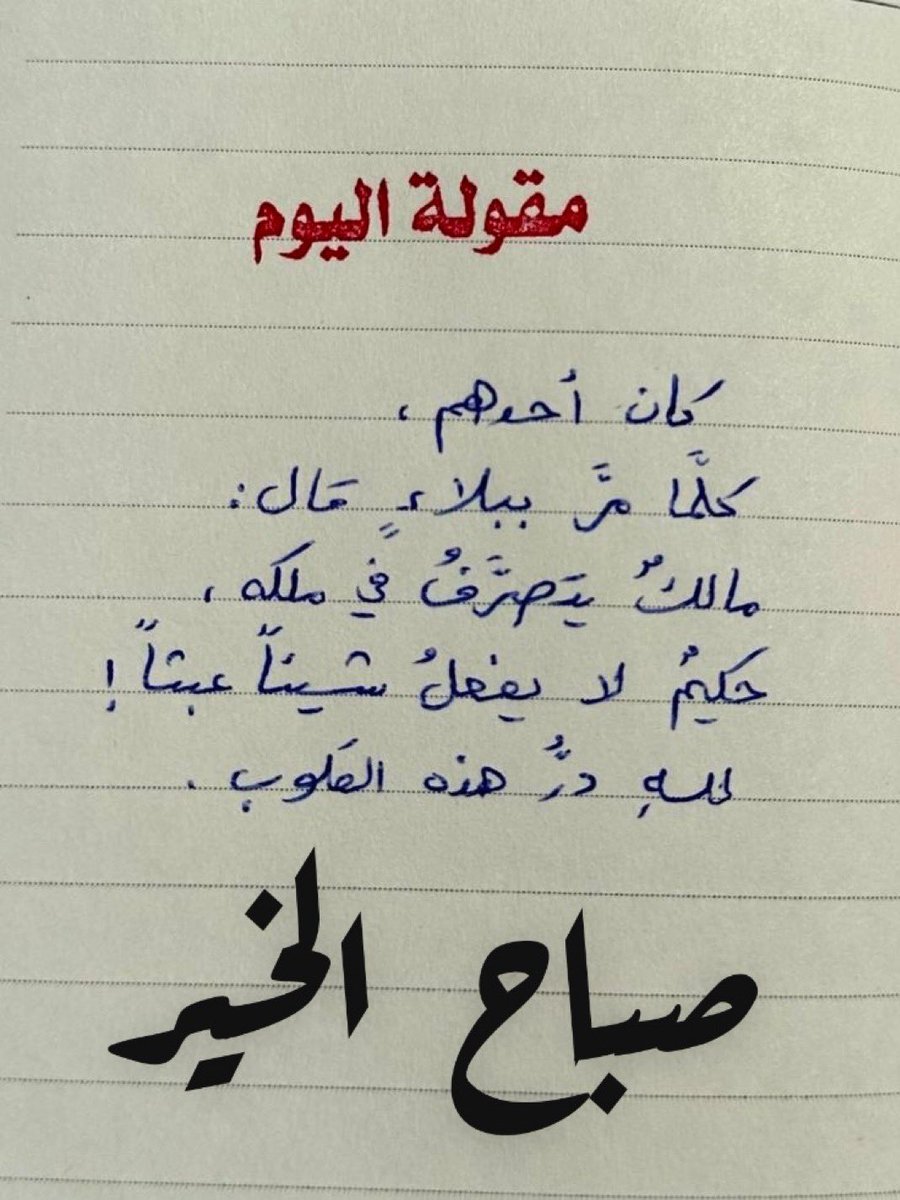 مقولة اليوم
كان أحدهم ،
كلَّما مرَّ ببلاءٍ قال :
مالكٌ يتَصرَّفُ في ملكه ،
حكيمٌ لا يفعلُ شيئاً عبثاً !
للهِ درُّ هذه القلوب .
صباح الخير